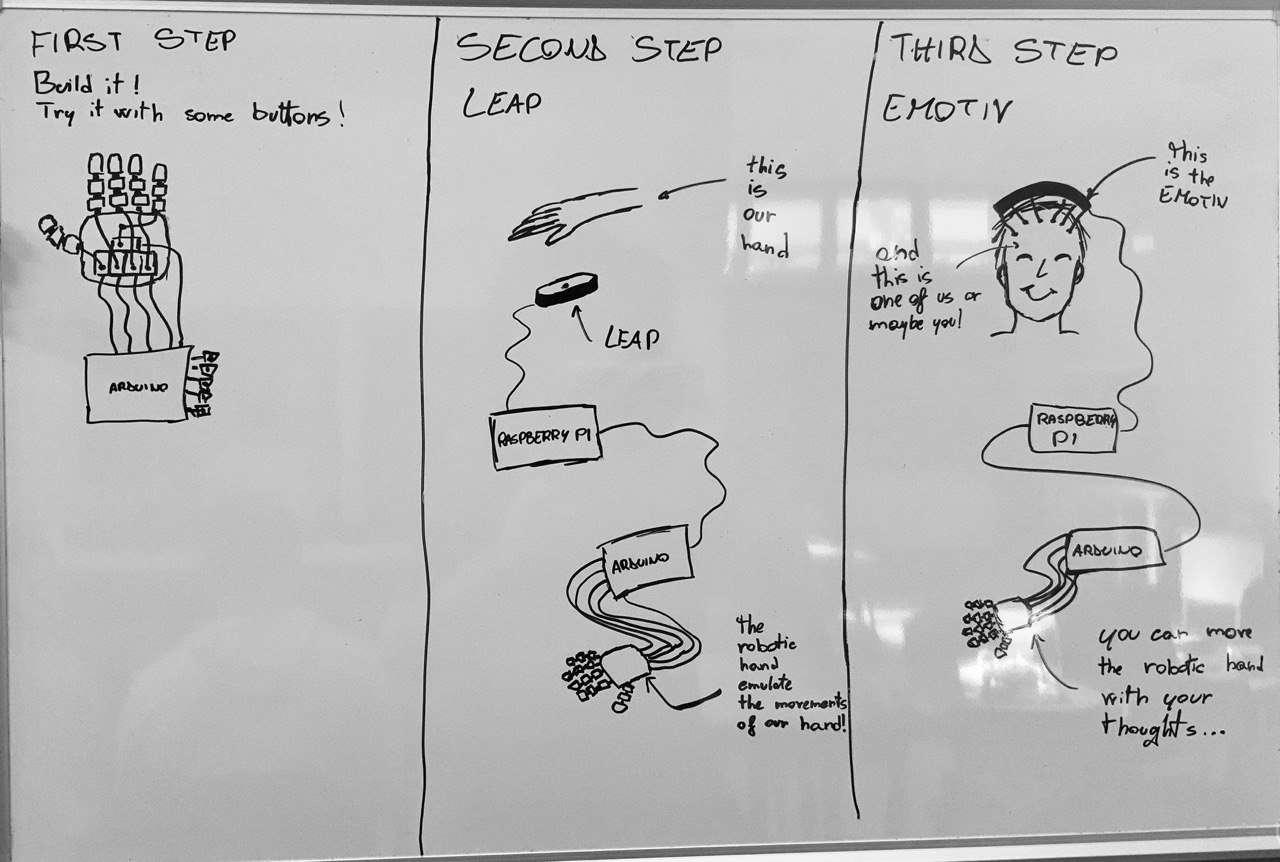 FIRST STEP
Build it!
Try it with some buttons!
ARDUINO
SECOND STEP
LEAP
this
is
our
hand
LEAP
RASPBERRY PI
ARDUINO
the
robotic
hand
emulate
the movements
of our hand!
THIRD STEP
EMOTIV
this
is the
EMOTIV
and
this is
one of us or
maybe you!
RASPBERRY
PI
ARDUINO
you can move
the robotic hand
with your
thoughts...